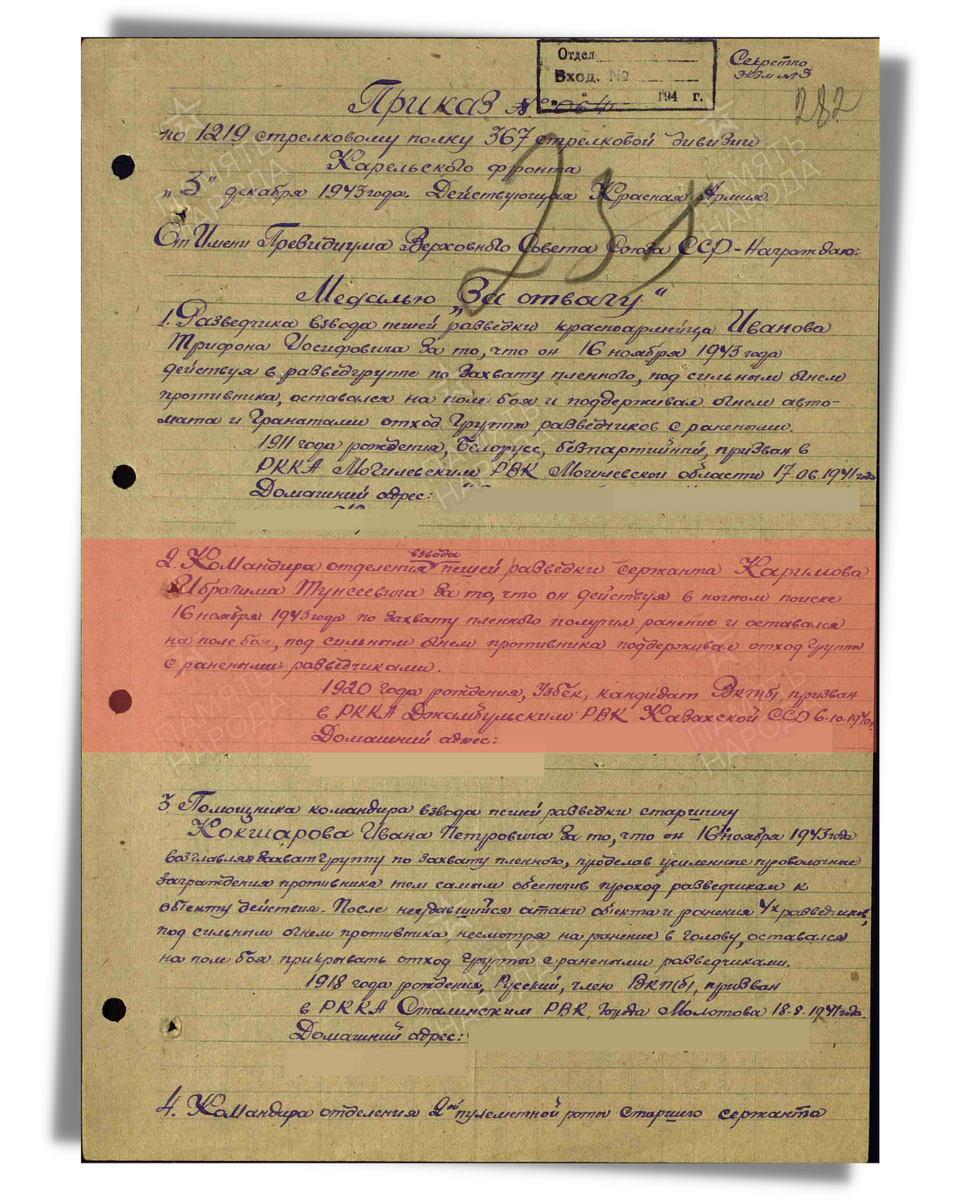 Отдел
Вход. №
194 г.
Секретно
экз м №3
282
Приказ № 064
по 1219 стрелковому полку 367 стрелковой дивизии
Карельского фронта
"3" декабря 1943 года. Действующая Красная Армия.
От Имени Президиума Верховного Совета Союза ССР - Награждаю:
Медалью "За отвагу"
1. Разведчика взвода пешей разведки красноармейца Иванова
Трифона Иосифовича за то, что он 16 ноября 1943 года
действуя в разведгруппе по захвату пленного, под сильным огнем
противника, оставался на поле боя и поддерживал огнем авто-
мата и гранатами отход группы разведчиков с ранеными.
1911 года рождения, Белорусс, безпартийный, призван в
РККА Могилевским РВК Могилевской области 17.06.1941 года
Домашний адрес:
взвода
2. Командира отделения пешей разведки сержанта Каримова
Ибрагима Тунсеевича за то, что он действуя в ночном поиске
16 ноября 1943 года по захвату пленного получил ранение и оставался
на поле боя, под сильным огнем противника поддерживал отход группы
с ранеными разведчиками.
1920 года рождения, Узбек, кандидат ВКП(б), призван
в РККА Джамбульским РВК Казахской ССР 6.10.1940 г.
Домашний адрес:
3 Помощника командира взвода пешей разведки старшину
Кокшарова Ивана Петровича за то, что он 16 ноября 1943 года
возглавляя захватгруппу по захвату пленного, проделав усиленные проволочные
заграждения противника тем самым обеспечив проход разведчикам к
объекту действия. После неудавшийся атаки объекта и ранения 4х разведчиков,
под сильным огнем противника, несмотря на ранение в голову, оставался
на поле боя прикрывать отход группы с ранеными разведчиками.
1918 года рождения, Русский, член ВКП(б), призван
в РККА Сталинским РВК, города Молотова 18.8.1941 года.
Домашний адрес:
4. Командира отделения 2ой пулеметной роты Старшего сержанта
ПАМЯТЬ
НАРОДА